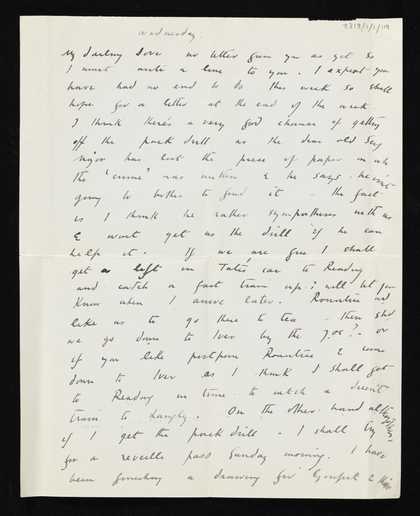 Wednesday.
My darling Love no letter from you as yet so
I must write a line to you. I expect you
have had no end to do this week so shall
hope for a letter at the end of the week.
I think there's a very good chance of getting
off the pack drill as the dear old Serg
major has lost the piece of paper in wh
the 'crime' was written & he says he isn't
going to bother to find it – the fact
is I think he rather sympathises with us
& wont get us the drill if he can
help it. If we are free I shall
get a lift in Tates' car to Reading
and catch a fast train up. I will let you
know when I arrive later. Rowntree wd
like us to go there to tea – then shd
we go down to Iver by the 7.05? – or
if you like postpone Rowntree & come
down to Iver as I think I shall get
to Reading in time to catch a decent
train to Langley. On the other hand
if I get the pack drill – I shall try
for a reveille pass Sunday morning. I have
been finishing a drawing for